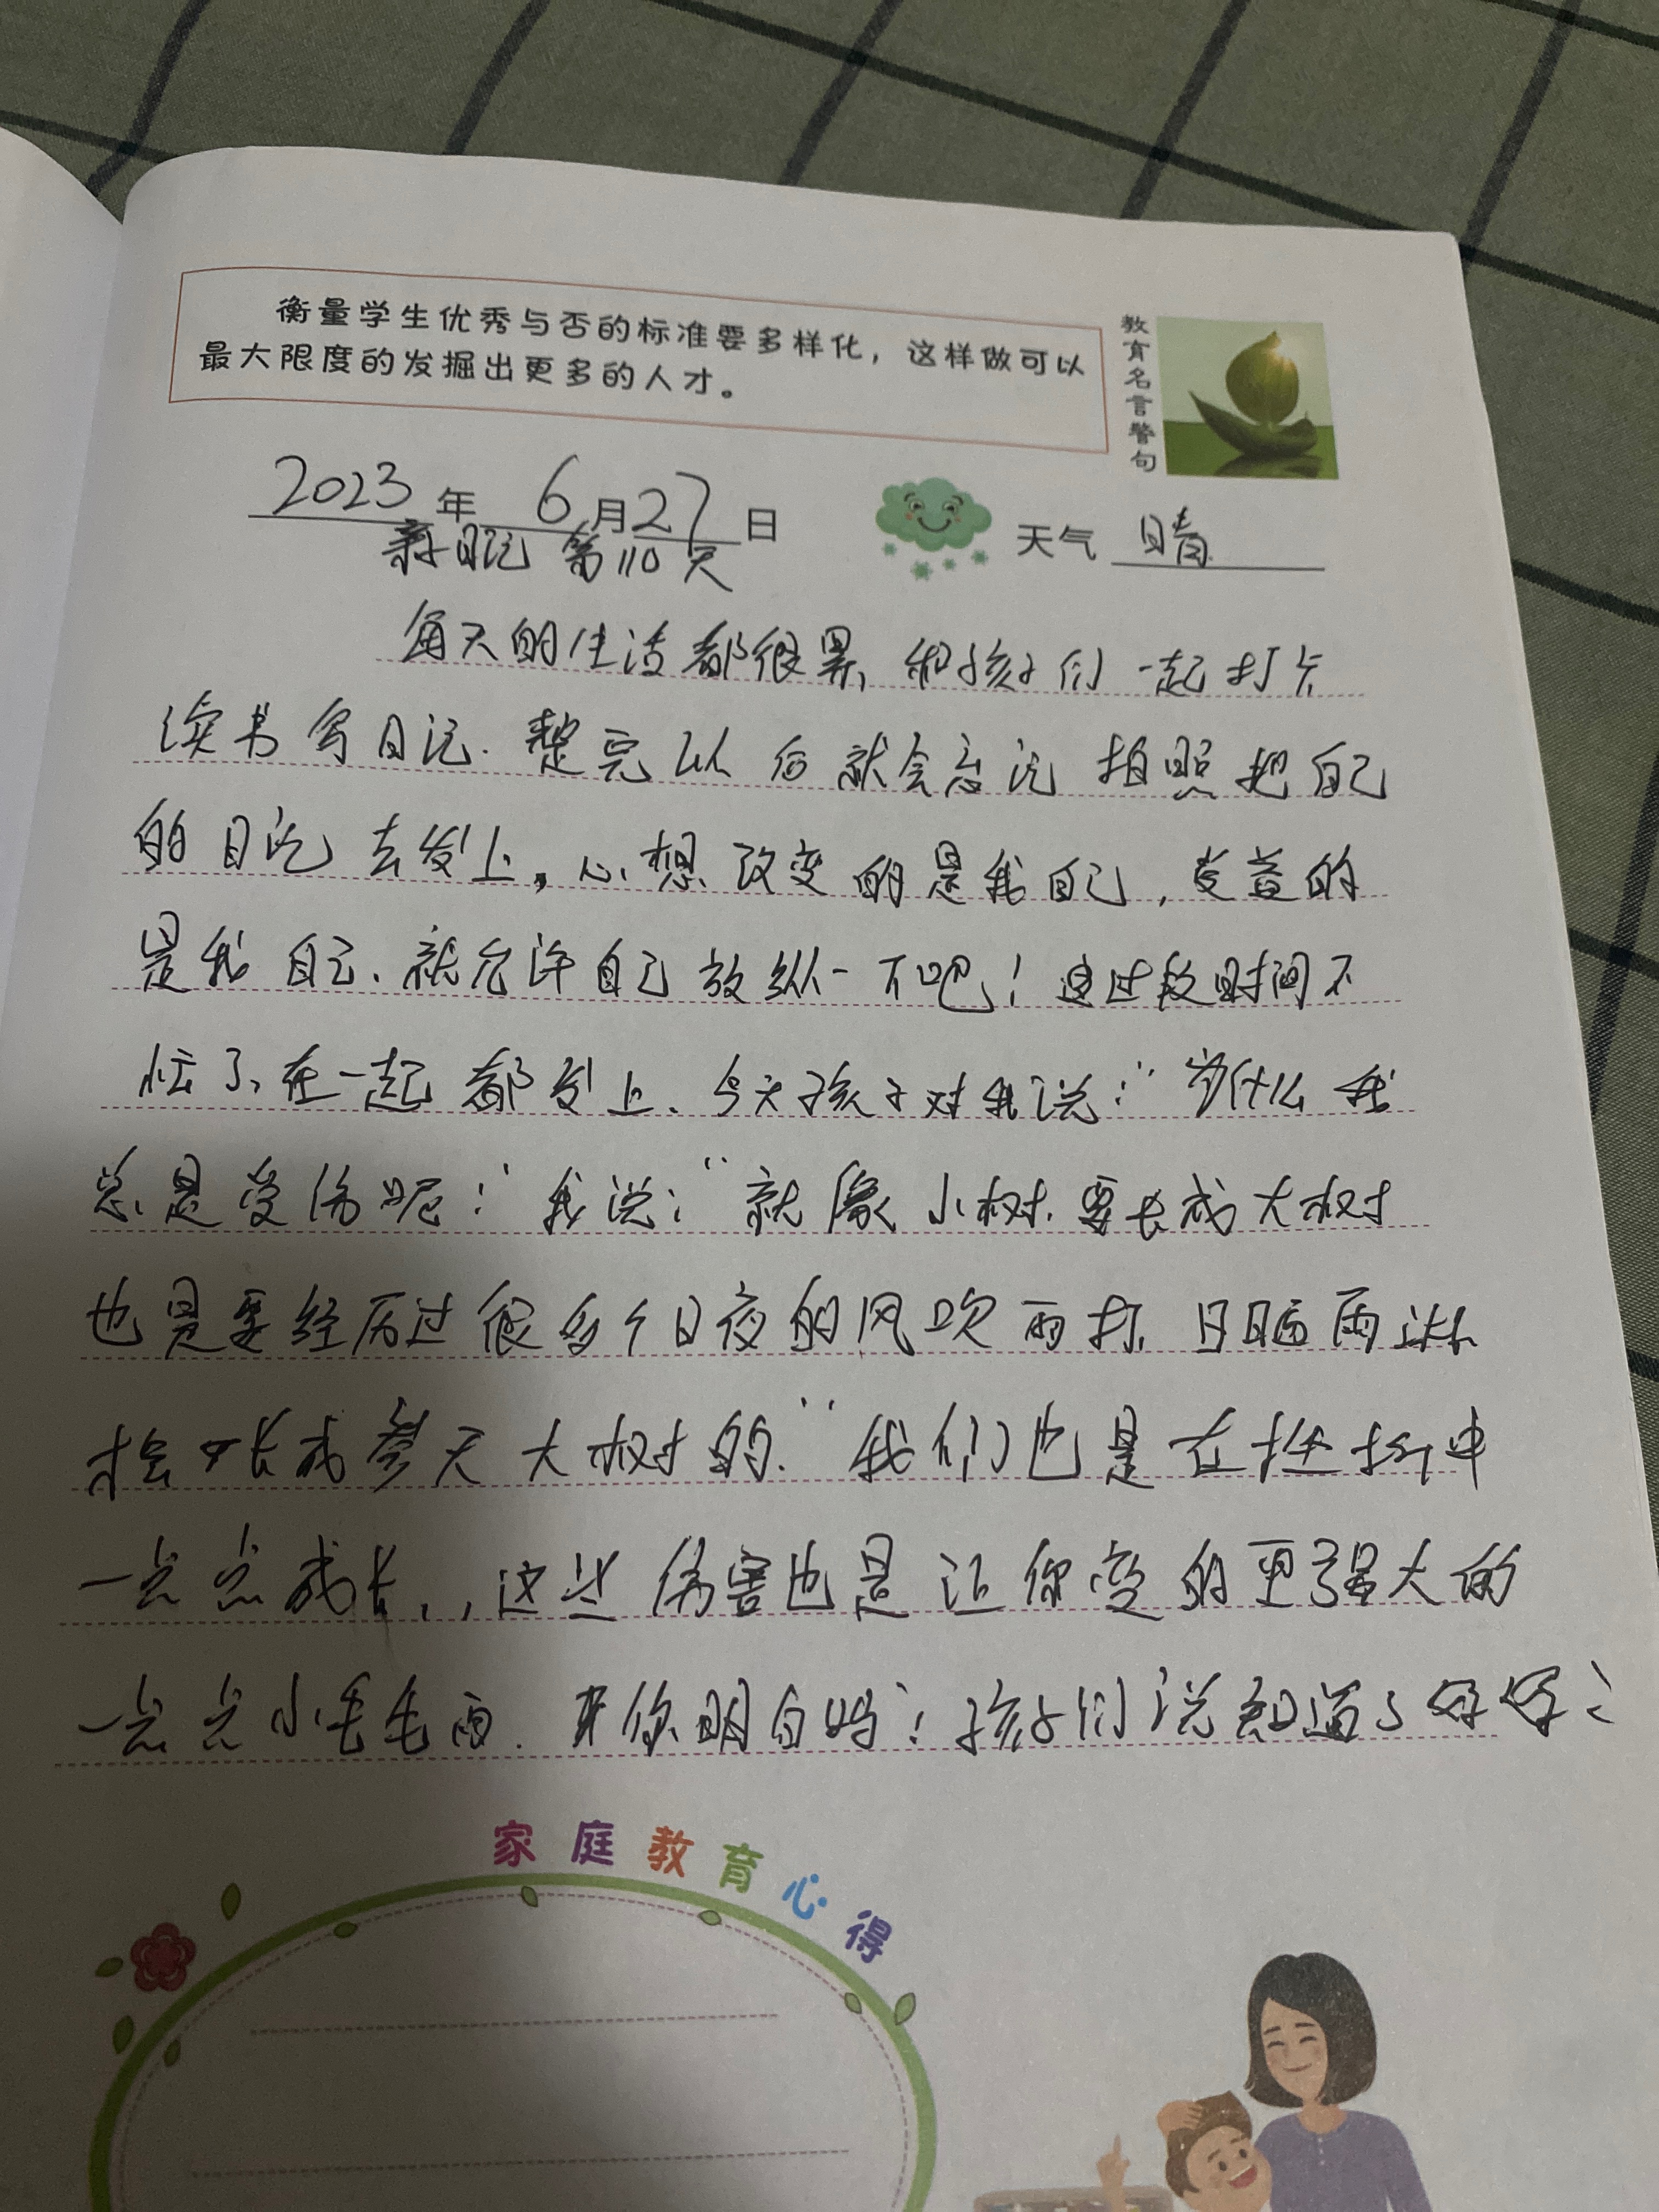 衡量学生优秀与否的标准要多样化，这样做可以
最大限度的发掘出更多的人才。
教育名言警句
2023年 6月27日
天气 晴
亲子日记 第110天
每天的生活都很累，和孩子们一起打卡
读书写日记．整完以后就会忘记拍照把自己
的日记去发上，心想改变的是我自己，受益的
是我自己、就允许自己放纵一下吧！这过段时间不
忙了，在一起都发上、今天孩子对我说：“为什么我
总是受伤呢？”我说：“就像小树，要长成大树
也是要经历过很多个日夜的风吹雨打，日晒雨淋
才会长成参天大树的．”我们也是在挫折中
一点点成长，，这些伤害也是让你变的更强大的
一点点小毛毛雨．你明白吗？孩子们说知道了好好
家庭教育心得